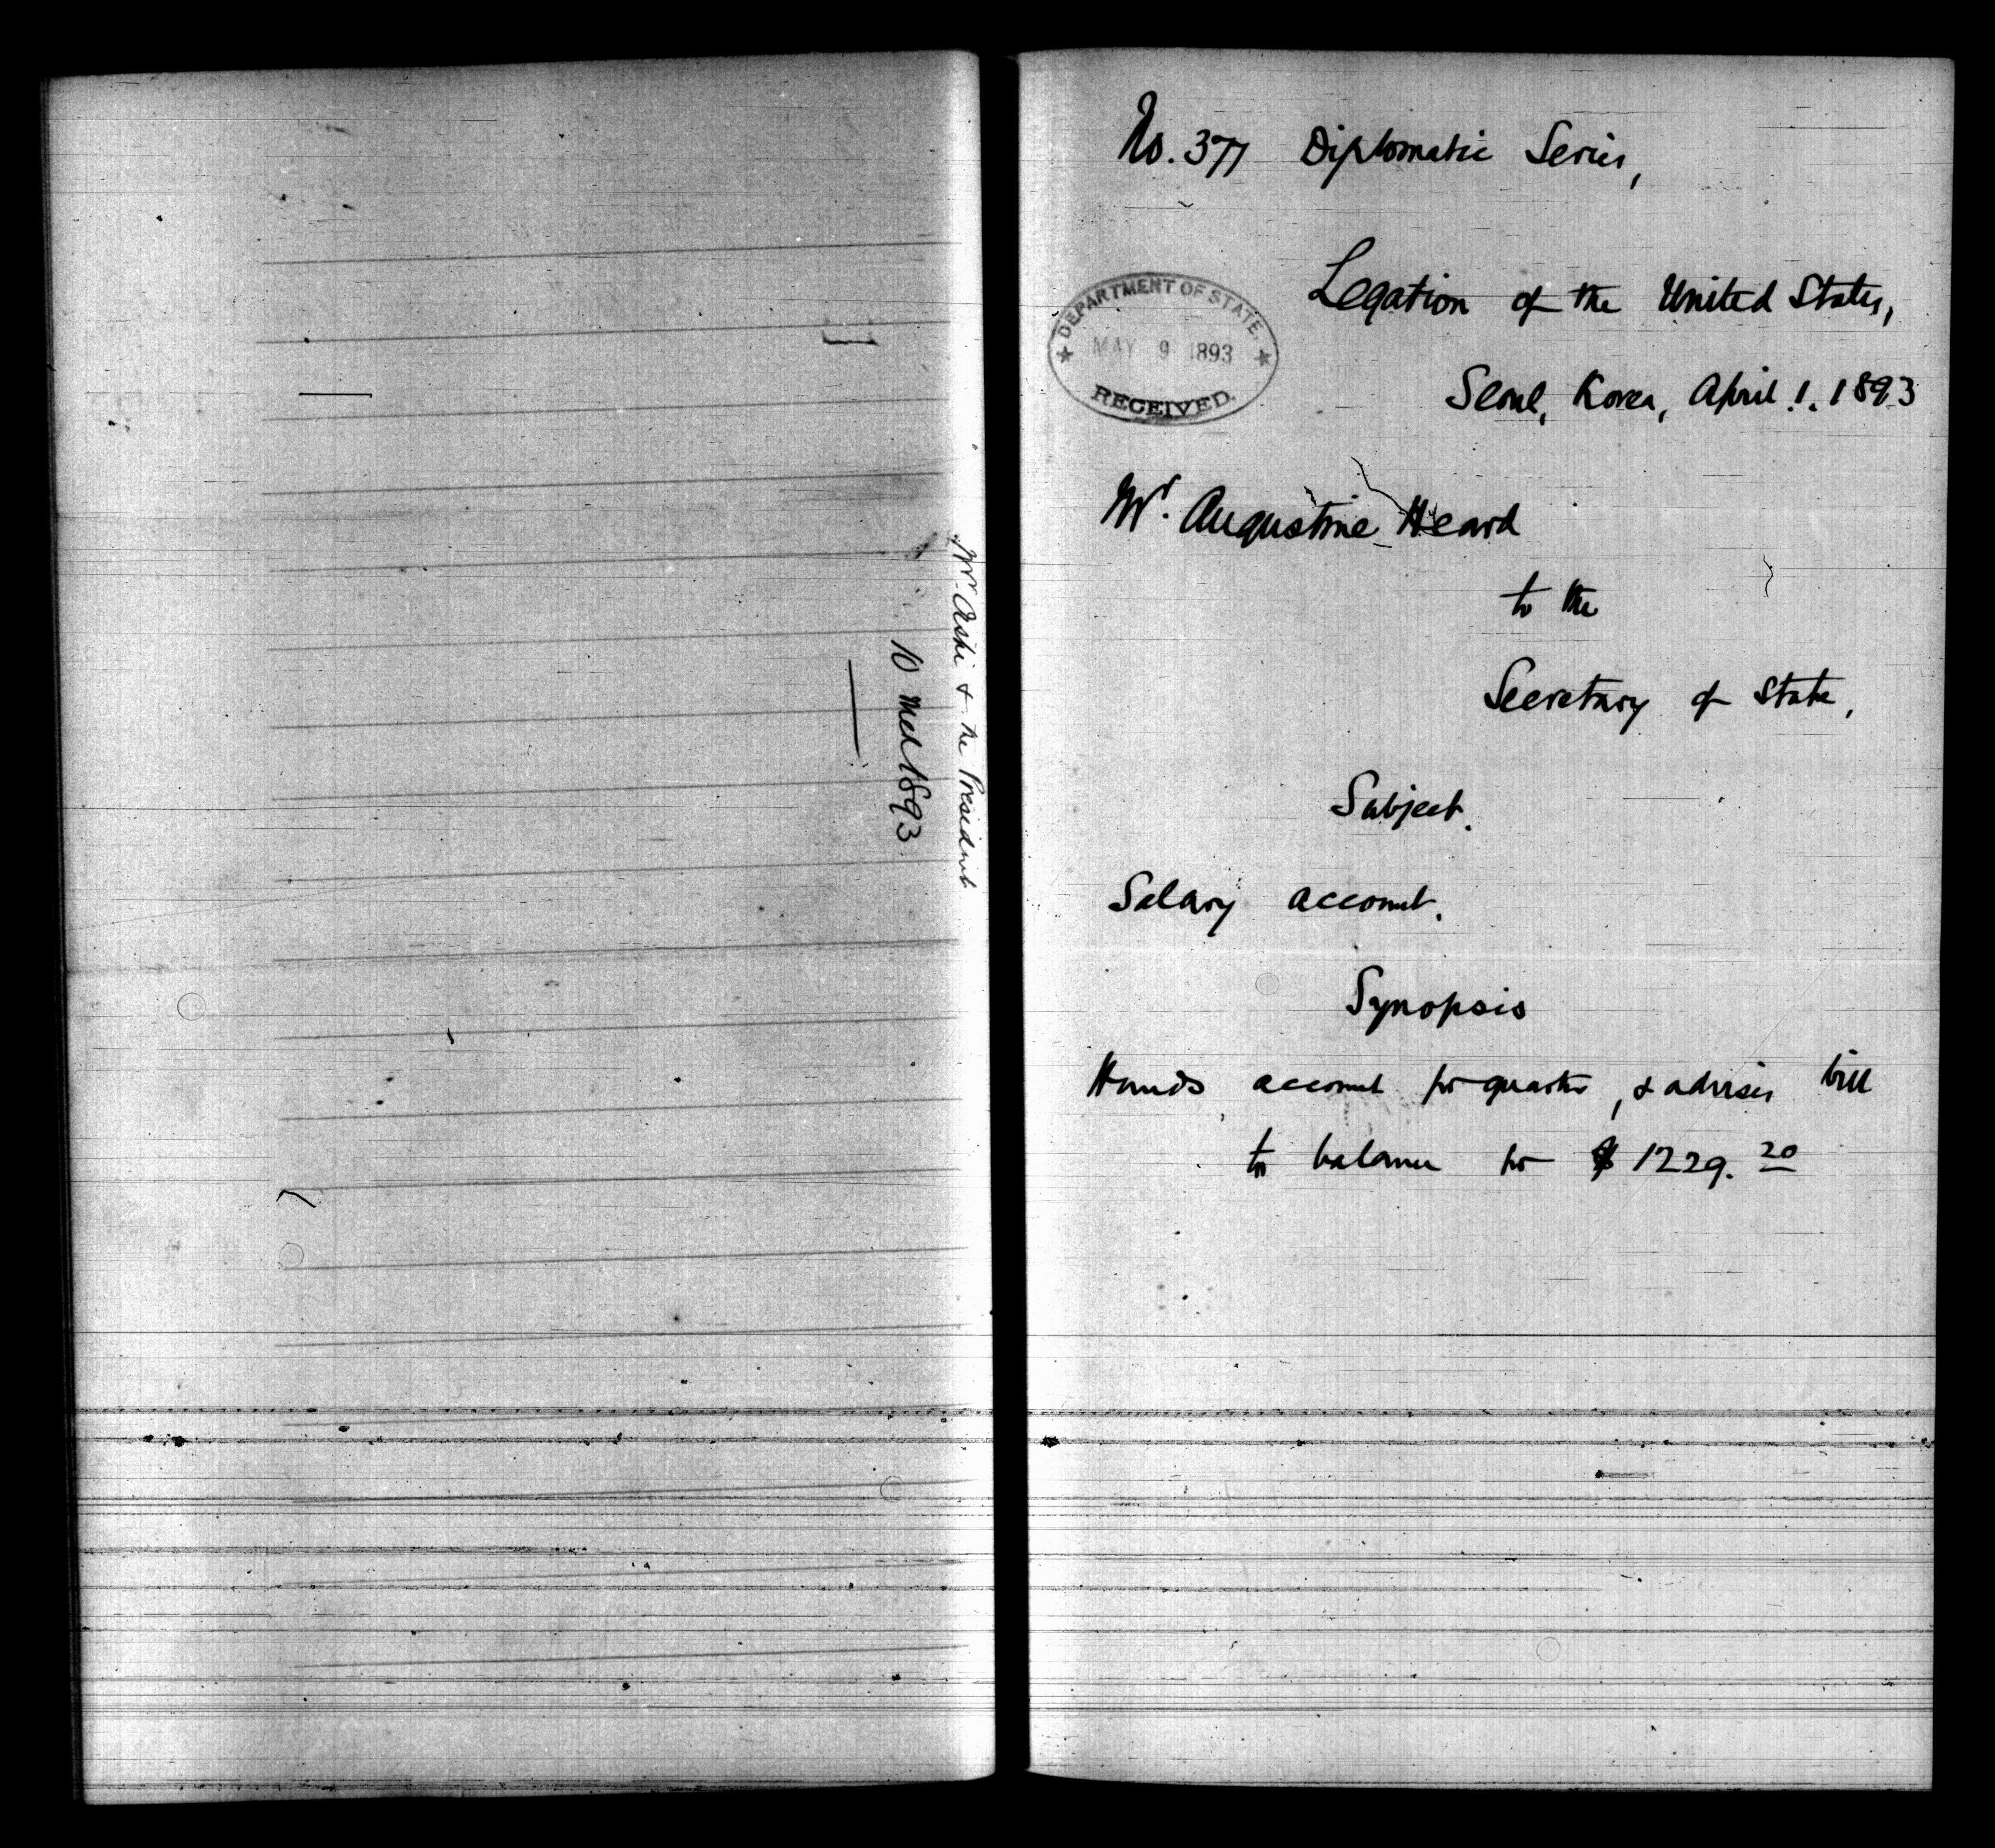 Mr. Aske & the President
10 Mch 1893
No. 377 Diplomatic Series,
Legation of the United States,
Seoul, Korea, April. 1. 1893
DEPARTMENT OF STATE.
MAY 9 1893
RECEIVED.
Mr. Augustine Heard
to the
Secretary of State,
Subject.
Salary account.
Synopsis
Hands account for quarter, & advises bill
to balance for $ 1229. 20